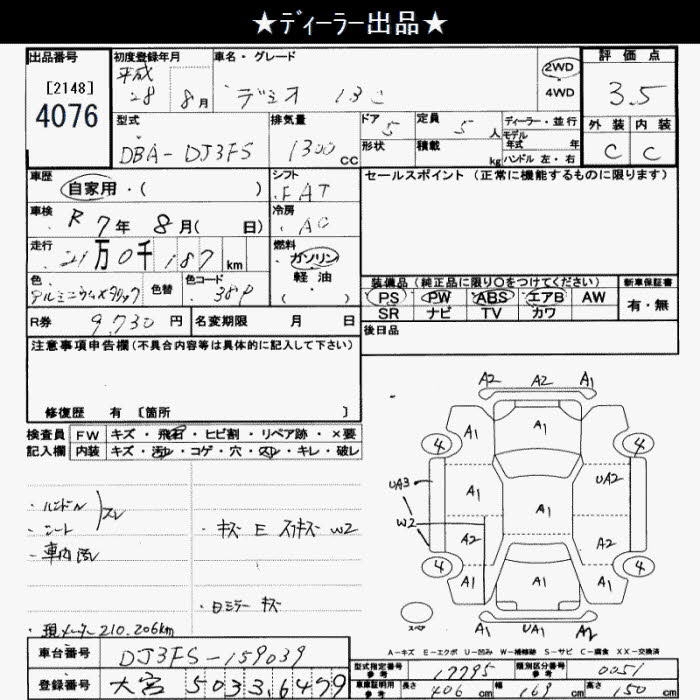 ★ディーラー出品★
出品番号
[2148]
4076
初度登録年月
平成
28 8月
車名・グレード
デミオ 13C
2WD
4WD
評価点
3.5
外装 内装
C C
型式
DBA-DJ3FS
排気量
1300 CC
ドア 5
定員 5 人
形状
積載 kg
ディーラー・並行
モデル
年式 年
ハンドル 左・右
車歴
自家用・( )
シフト
FAT
セールスポイント (正常に機能するものに限ります)
車検
R 7年 8月( 日)
冷房
AC
走行
21万0千187km
燃料
ガソリン
軽油
( )
色
アルミニウムメタリック
色替
色コード
38P
装備品 (純正品に限り○をつけてください)
PS PW ABS エアB AW
SR ナビ TV カワ
新車保証書
有・無
R券 9,730円
名変期限 月 日
後日品
注意事項申告欄(不具合内容等は具体的に記入して下さい)
修復歴 有 [箇所 ]
検査員
記入欄
FW キズ・飛石・ヒビ割・リペア跡・×要
内装 キズ・汚れ・コゲ・穴・スレ・キレ・破レ
・ハンドル
・シート
スレ
・車内汚レ
・キズ E スリキズ W2
・日ミラー キズ
・現メーター210.206km
A2 A2 A1
A1 A1
4 4
UA3 UA2
A1 A1
W2
A2 A2
4 4
A1 A1 A1
スペア
A1 UA1 A2
A-キズ E-エクボ U-凹み W-補修跡 S-サビ C-腐食 XX-交換済
車台番号 DJ3FS-159039
登録番号 大宮 503 3 6479
型式指定番号 参考 17795
類別区分番号 参考 0051
車庫証明用 参考 長さ 406 cm 幅 169 cm 高さ 150 cm